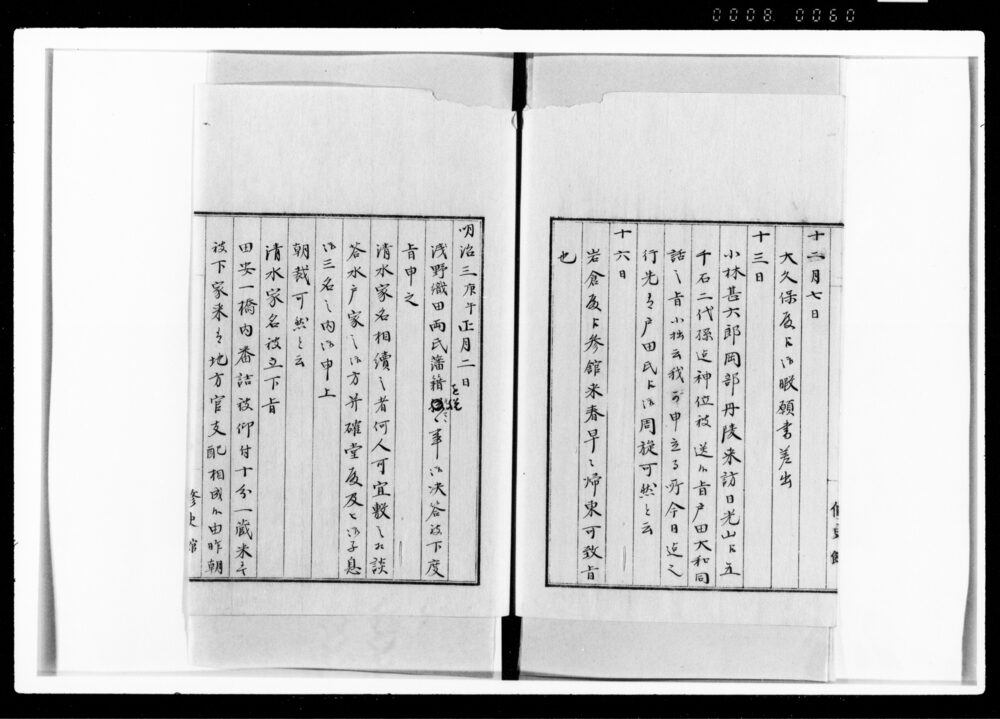 0008 0060
十二月七日
大久保殿ゟ御暇願書差出
十三日
小林甚六郎岡部丹陵来訪日光山ゟ五
千石二代孫迄神位被送候旨戸田大和同
話之旨小拙云我可申立る所今日迄之
行先は戸田氏ゟ御周旋可然と云
十六日
岩倉殿ゟ参館来春早々帰東可致旨
也
明治三庚午正月二日
浅野織田両氏藩籍之事御決答被下度
旨申之
清水家名相續之者何人可宜敷之相談
答水戸家之御方并確堂殿及七御子息
御三名之内御申上
朝裁可然と云
清水家名被立下旨
田安一橋内番詰被仰付十分一蔵米ヲ
被下家来は地方官支配相成候由昨朝
修史館